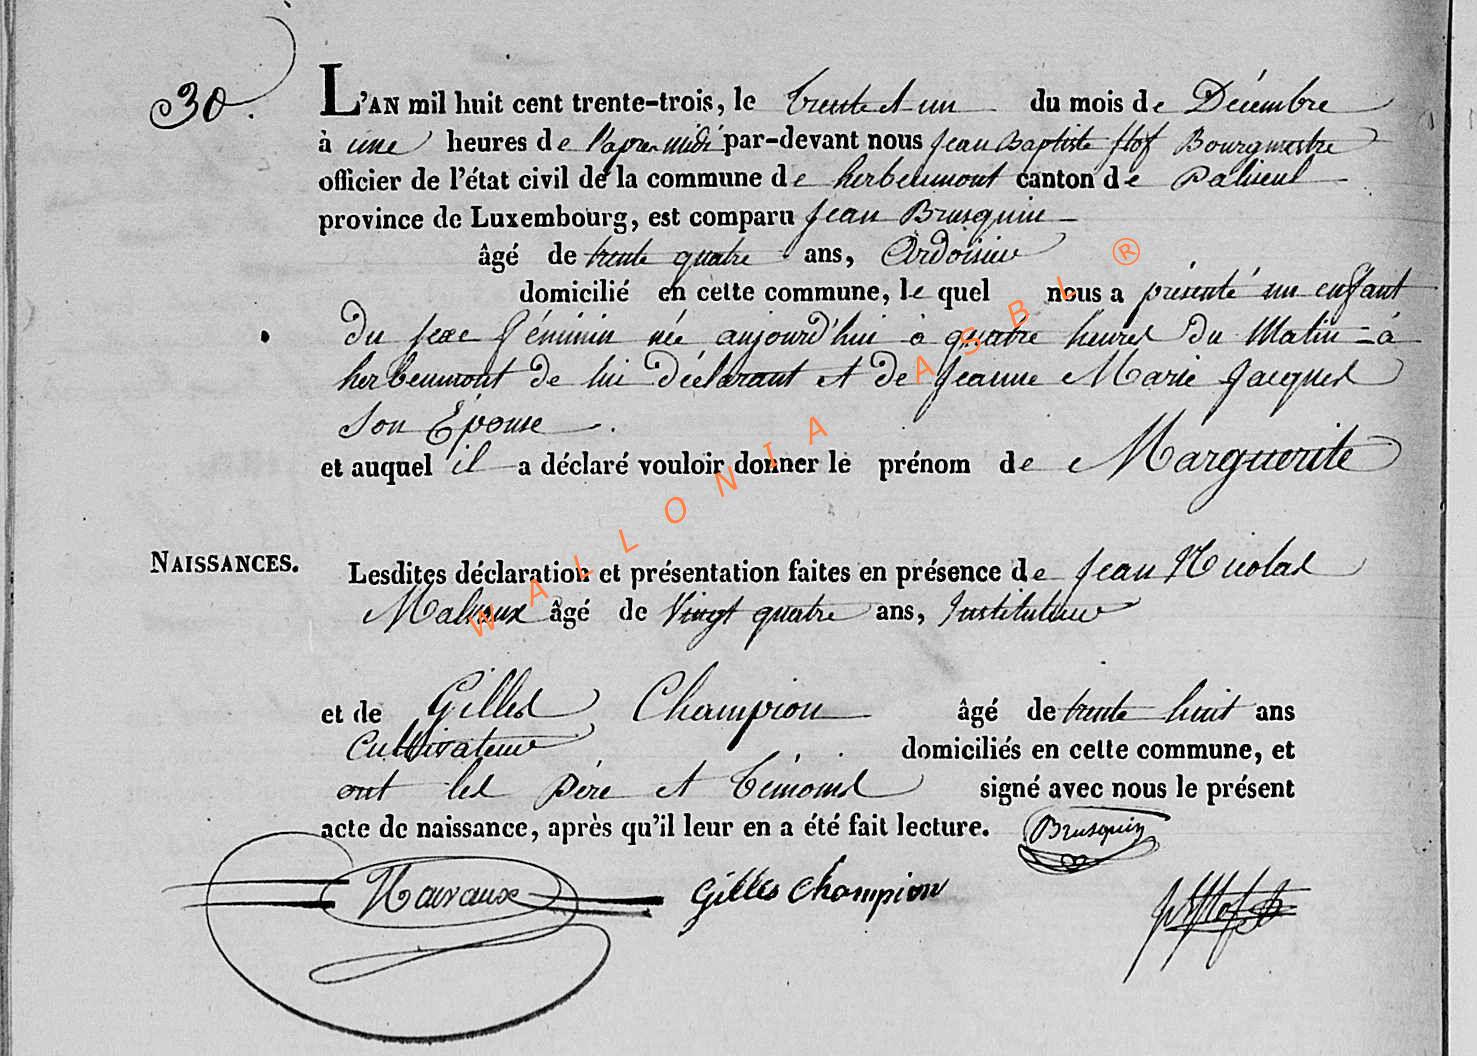 30.
L'AN mil huit cent trente-trois, le trente et un du mois de Décembre
à une heures de l'apres midi par-devant nous Jean Baptiste Hof Bourgmestre
officier de l'état civil de la commune de herbeumont canton de Paliseul
province de Luxembourg, est comparu Jean Brusquin
âgé de trente quatre ans, Ardoisier
domicilié en cette commune, le quel nous a présenté un enfant
du sexe féminin née aujourd'hui à quatre heures du Matin à
herbeumont de lui déclarant et de Jeanne Marie Jacques
Son Epouse.
et auquel il a déclaré vouloir donner le prénom de Marguerite
NAISSANCES.
Lesdites déclaration et présentation faites en présence de Jean Nicolas
âgé de Vingt quatre ans, Instituteur
et de Gilles Champion âgé de trente huit ans
Cultivateur domiciliés en cette commune, et
ont les père et témoins signé avec nous le présent
acte de naissance, après qu'il leur en a été fait lecture. Brusquin
Gilles Champion
WALLONIA ASBL ®